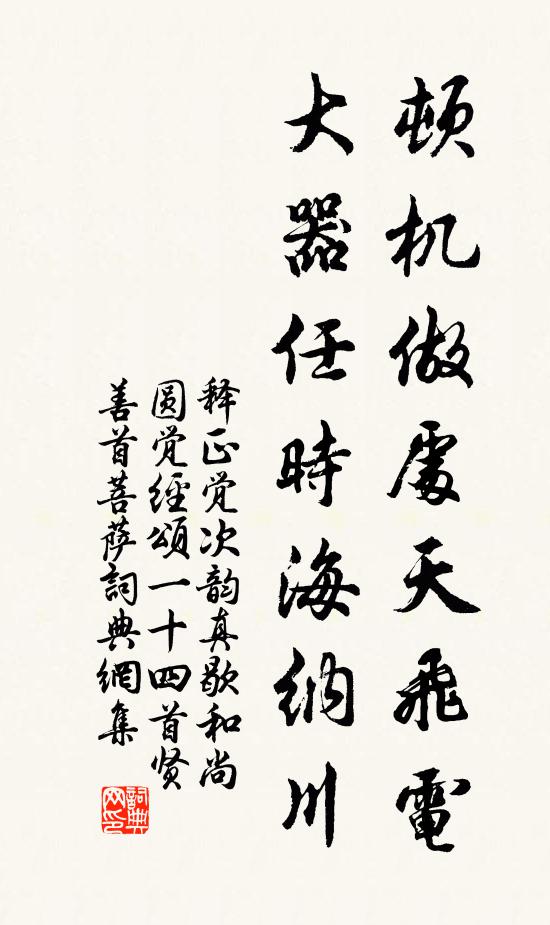 顿机做處天飛電
大器任時海纳川
释正觉次韵真歇和尚
圆觉經頌一十四首贤
善首菩萨詞典網集
詞典
网印